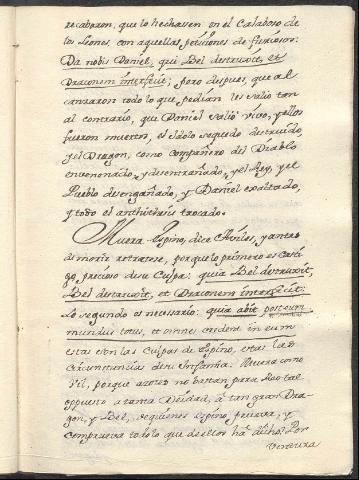 recabaron, que lo hechasen en el Calaboso de
los Leones, con aquellas petisiones de furiosos:
Da nobis Daniel, qui Bel destruxit, et
Draconem interfecit; pero despues, que al
canzaron todo lo que pedian les salio tan
al contrario, que Daniel salió vivo, y ellos
fueron muertos, el Idolo segundo destruido,
y el Dragon, como compañero del Diablo
envenenado, y desentrañado, y el Rey, y el
Pueblo desengañado, y Daniel exaltado,
y todo el anthithesis trocado.
Muera Espino, dice Aviles, y antes
de morir retratese, por que lo primero es casti
go, preciso de su Culpa: quia Bel destruxit,
Bel destruxit, et Draconem interfecit:
Lo segundo es necesario: quia abit post eum
mundus totus, et omnes credent in eum
estas son las Culpas de Espino, estas las
Circunstancias de su Infamia. Muera como
Vil, porque azotes no bastan para Reo tal
opuesto a tanta Deidad, â tan gran Dra-
gon, y Bel, de quienes Espino, pecava, y
comprueva todo lo que de ellos ha dicho. Por
ventura